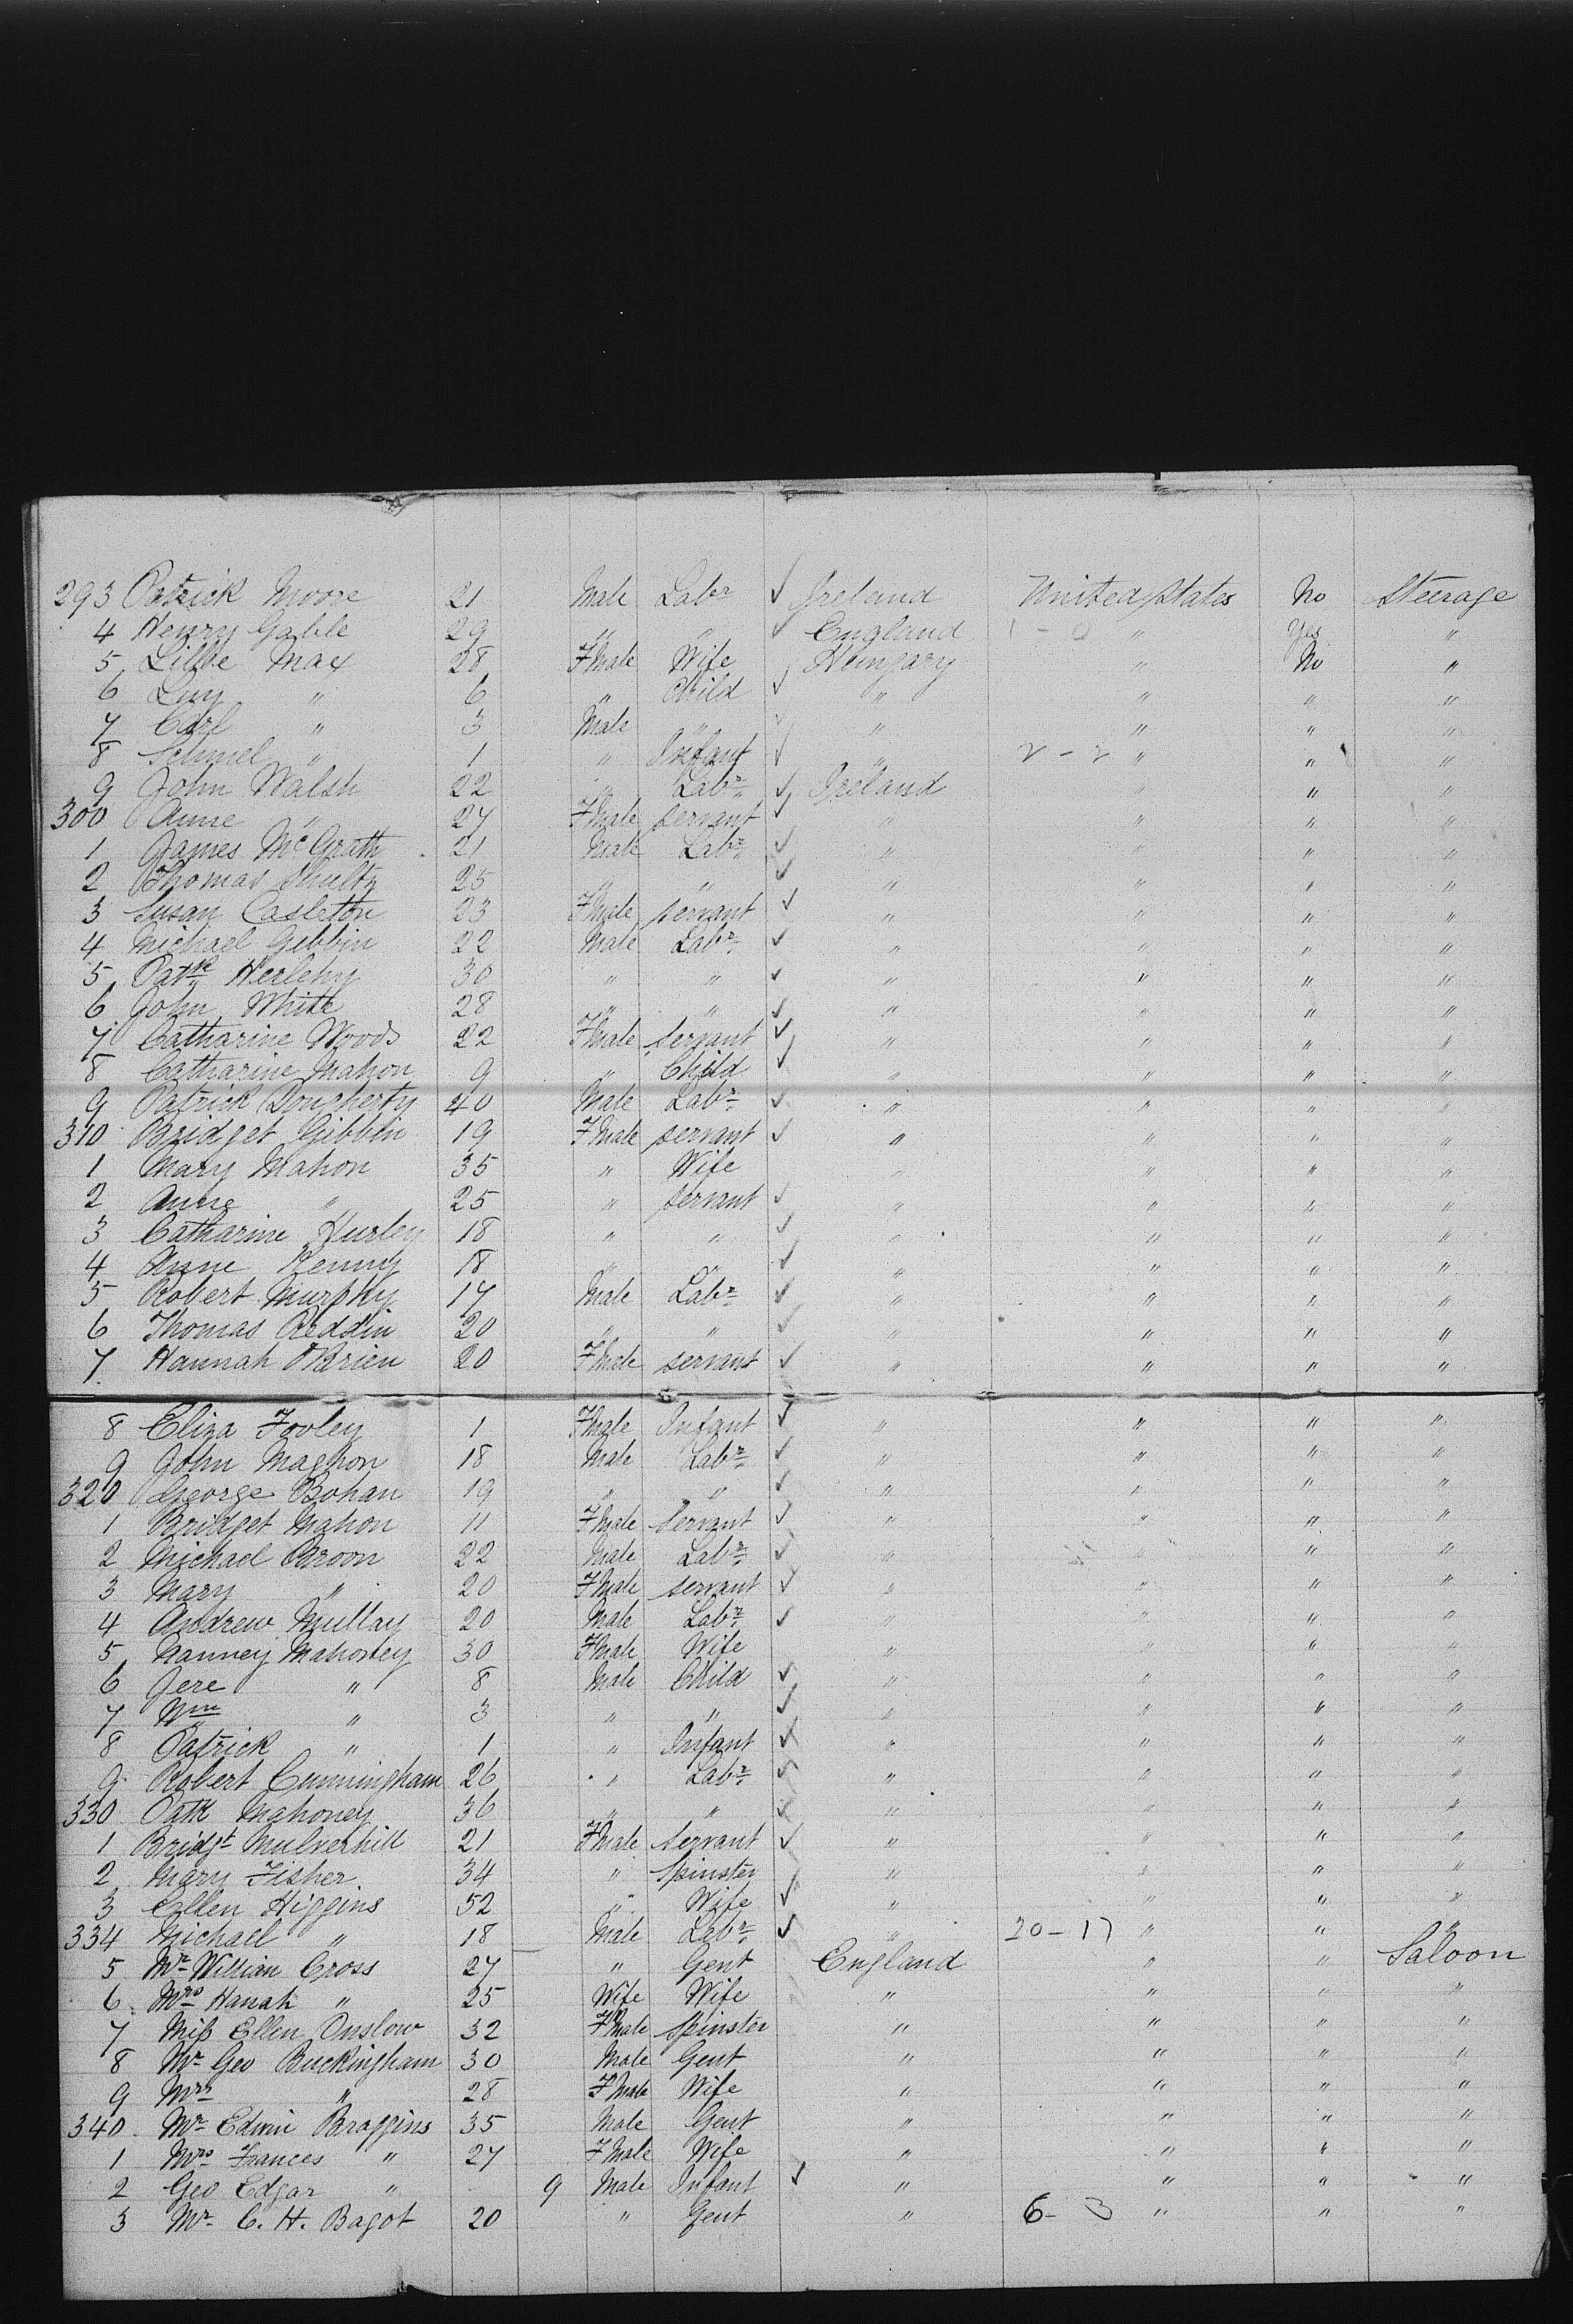 293 Patrick Moore 21 Male Labr Ireland United States No Steerage
4 Henry Gable 29 " " England 1-0 " Yes "
5 Libbe Max 28 Fmale Wife Hungary " No "
6 " 6 " Child " " " "
7 Carl " 3 Male " " " " "
8 " 1 " Infant " 2-2 " " "
9 John Walsh 22 " Labr Ireland " " "
300 Anne " 27 Fmale servant " " " "
1 James McGrath 21 Male Labr " " " "
2 Thomas 25 " " " " " "
3 Susan Casleton 23 Fmale servant " " " "
4 Michael Gibbin 22 Male Labr " " " "
5 Patk Herlehy 30 " " " " " "
6 John White 28 " " " " " "
7 Catharine Woods 22 Fmale servant " " " "
8 Catharine Mahon 9 " Child " " " "
9 Patrick Dougherty 40 Male Labr " " " "
310 Bridget Gibbin 19 Fmale servant " " " "
1 Mary Mahon 35 " Wife " " " "
2 Anne " 25 " servant " " " "
3 Catharine Hurley 18 " " " " " "
4 Anne Kenny 18 " " " " " "
5 Robert Murphy 17 Male Labr " " " "
6 Thomas Reddin 20 " " " " " "
7 Hannah O'Brien 20 Fmale servant " " " "
8 Eliza Fooley 1 Fmale Infant " " " "
9 John Maghon 18 Male Labr " " " "
320 George Bohan 19 " " " " " "
1 Bridget Mahon 11 Fmale Servant " " " "
2 Michael Broon 22 Male Labr " " " "
3 Mary " 20 Fmale servant " " " "
4 Andrew Mullay 20 Male Labr " " " "
5 Nanney Mahoney 30 Fmale Wife " " " "
6 Jere " 8 Male Child " " " "
7 Wm " 3 " " " " " "
8 Patrick " 1 " Infant " " " "
9 Robert Cunningham 26 " Labr " " " "
330 Patk Mahoney 36 " " " " " "
1 Bridgt Mulverhill 21 Fmale servant " " " "
2 Mary Fisher 34 " Spinster " " " "
3 Ellen Higgins 52 " Wife " " " "
334 Michael " 18 Male Labr " 20-17 " " "
5 Mr William Cross 27 " Gent England " " Saloon
6 Mrs Hanah " 25 Wife Wife " " " "
7 Miss Ellen Onslow 32 Fmale Spinster " " " "
8 Mr Geo Buckingham 30 Male Gent " " " "
9 Mrs " 28 Fmale Wife " " " "
340 Mr Edwin Braggins 35 Male Gent " " " "
1 Mrs Frances " 27 Fmale Wife " " " "
2 Geo Edgar " 9 Male Infant " " " "
3 Mr C. H. Bagot 20 " Gent " 6-3 " " "